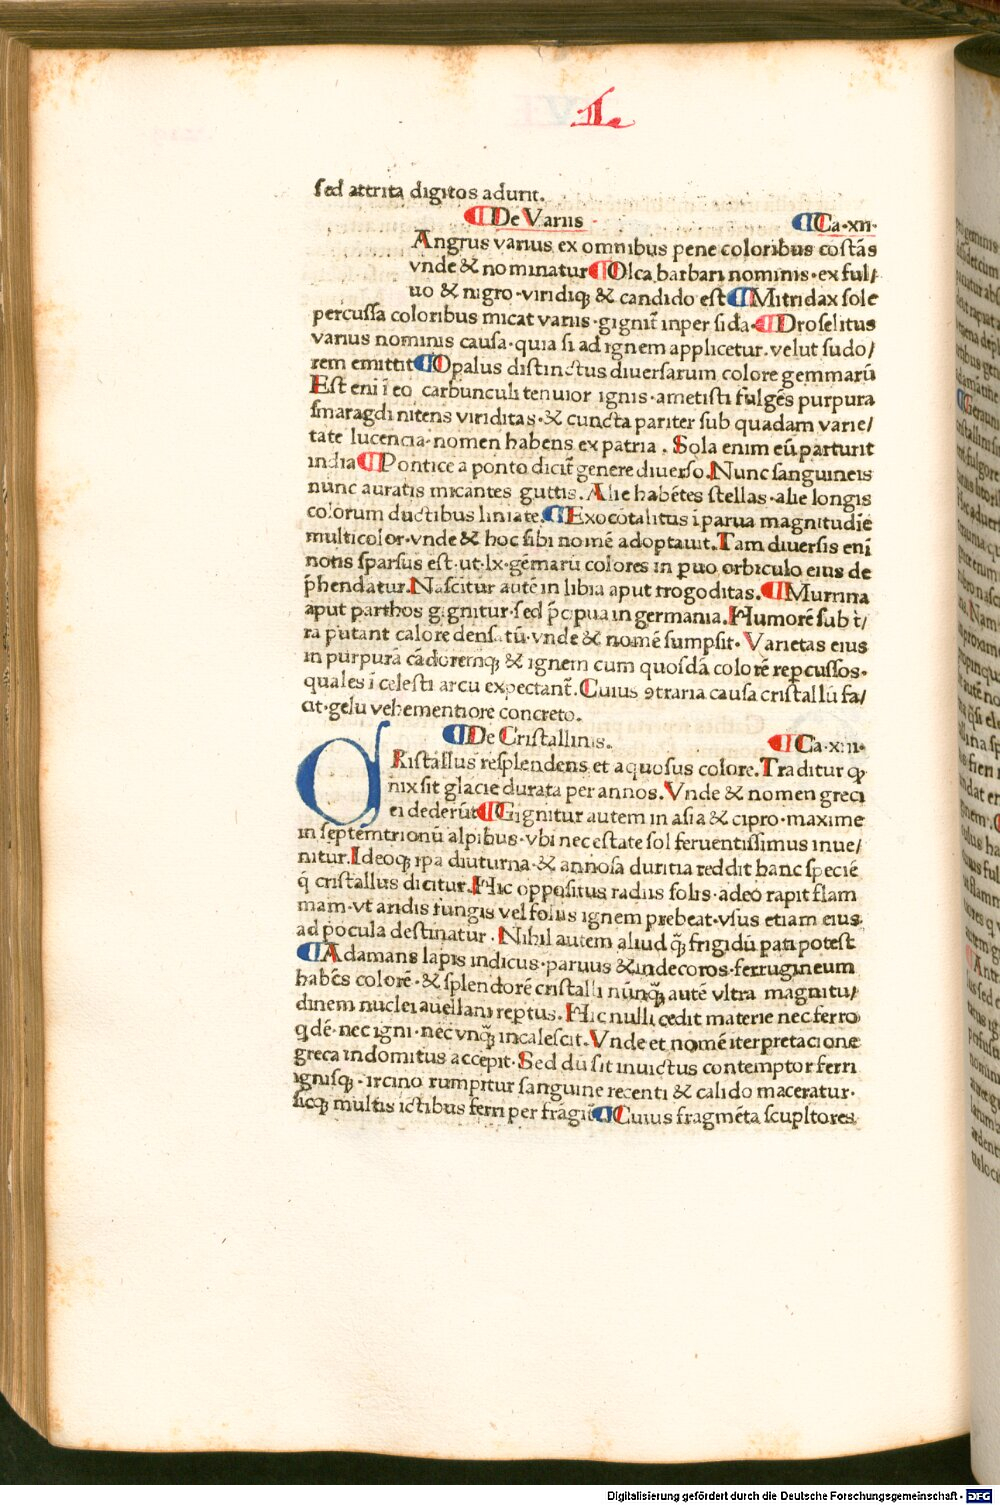 L
sed attrita digitos adurit.
¶De Variis ¶Ca·xii·
Angrus varius ex omnibus pene coloribus costās
vnde & nominatur¶Olca barbari nominis·ex ful/
uo & nigro·viridiqꝫ & candido est¶Mitridax sole
percussa coloribus micat variis·gignit̄ inper sida·¶Droselitus
varius nominis causa·quia si ad ignem applicetur.velut sudo/
rem emittit¶Opalus distinctus diuersarum colore gemmarū
Est eni ī eo carbunculi tenuior ignis·ametisti fulgēs purpura
smaragdi nitens viriditas·& cuncta pariter sub quadam varie/
tate lucencia·nomen habens ex patria. Sola enim eū parturit
india¶Pontice a ponto dicit̄ genere diuerso.Nunc sanguineis
nunc auratis micantes guttis.Alie habētes stellas·alie longis
colorum ductibus liniate.¶Exocotalitus ī parua magnitudīe
multicolor·vnde & hoc sibi nomē adoptauit.Tam diuersis enī
notis sparsus est·ut·lx·gēmarū colores in p̄uo orbiculo eius de
p̄hendatur.Nascitur autē in libia aput trogoditas.¶Murrina
aput parthos gignitur·sed p̄cipua in germania.Humorē sub t̄/
ra putant calore densatū·vnde & nomē sumpsit·Varietas eius
in purpurā cādoremqꝫ & ignem cum quosdā colorē repcussos·
quales ī celesti arcu expectant̄.Cuius ꝯtraria causa cristallū fa/
cit·gelu vehementiore concreto.
¶De Cristallinis. ¶Ca·xiii·
CRistallus resplendens et aquosus colore.Traditur qꝙ
nix sit glacie durata per annos.Vnde & nomen greci
ei dederūt¶Gignitur autem in asia & cipro·maxime
in septemtrionū alpibus·vbi nec estate sol feruentissimus inue/
nitur.Ideoqꝫ ipa diuturna·& annosa duritia reddit hanc specié
q̄ cristallus dicitur.Hic oppositus radiis solis·adeo rapit flam
mam·vt aridis fungis vel foliis ignem prebeat·vsus etiam eius
ad pocula destinatur.Nihil autem aliud q̄ꝫ frigidū pati potest
¶Adamans lapis indicus·paruus & indecoros·ferrugineum
habēs colorē·& splendorē cristalli nūnqꝫ autē vltra magnitu/
dinem nuclei auellani reptus.Hic nulli cedit materie nec ferro
qdē·nec igni·nec vnqꝫ incalescit.Vnde et nomē iterpretacione
greca indomitus accepit·Sed dū sit inuictus contemptor ferri
ignisqꝫ·ircino rumpitur sanguine recenti & calido maceratur·
sicqꝫ multis ictibus ferri per frāgit̄¶Cuius fragmēta scupltores
Digitalisierung gefördert durch die Deutsche Forschungsgemeinschaft - DFG